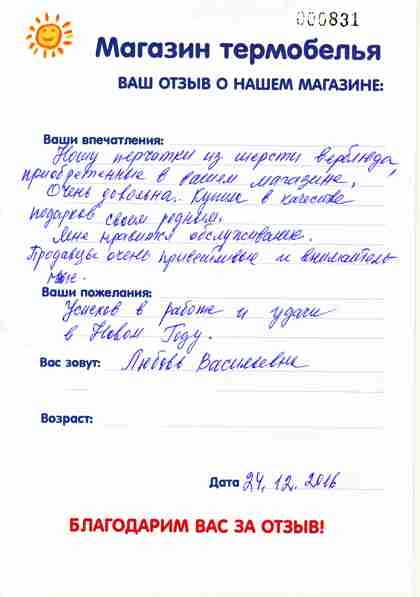 000831
Магазин термобелья
ВАШ ОТЗЫВ О НАШЕМ МАГАЗИНЕ:
Ваши впечатления:
Ношу перчатки из шерсти верблюда,
приобретенные в вашем магазине.
Очень довольна. Купили в качестве
подарков своим родным.
Мне нравится обслуживание.
Продавцы очень приветливые и вниматель
ные.
Ваши пожелания:
Успехов в работе и удачи
в Новом Году.
Вас зовут: Любовь Васильевна
Возраст:
Дата 24.12.2016
БЛАГОДАРИМ ВАС ЗА ОТЗЫВ!